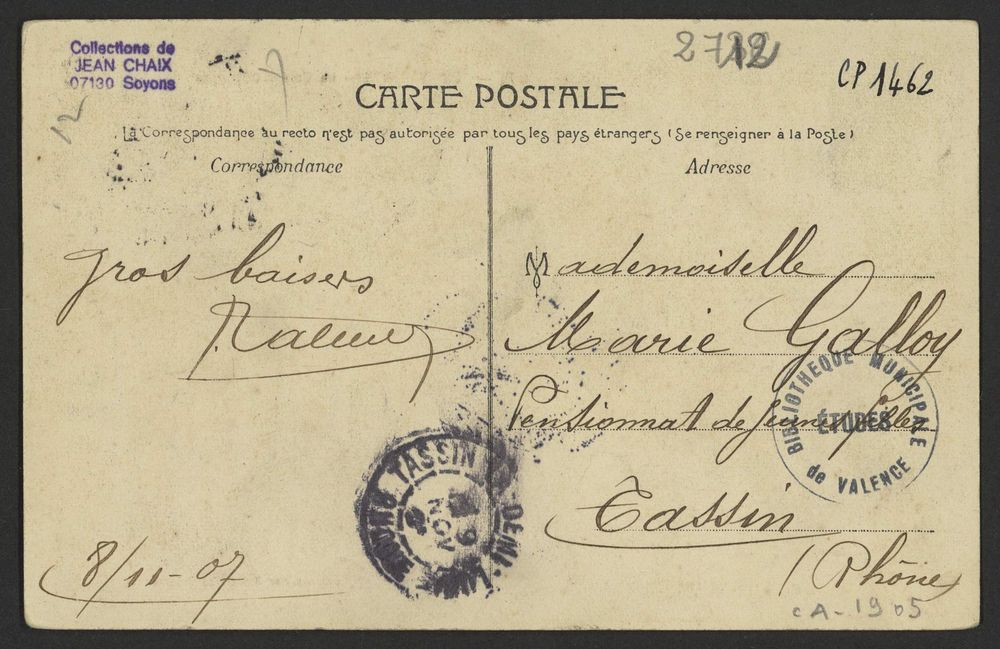 Collections de
JEAN CHAIX
07130 Soyons
12
A
CP 1462
CARTE POSTALE
La Correspondance au recto n'est pas autorisée par tous les pays étrangers (Se renseigner à la Poste)
Correspondance
Adresse
gros baisers
8/11-07
Mademoiselle
Marie Galloy
Pensionnat de Jeunes filles
Tassin
(Rhône)
BIBLIOTHEQUE MUNICIPALE
ÉTUDES
de VALENCE
TASSIN LA DEMI-LUNE
RHONE
NOV
CA-1905